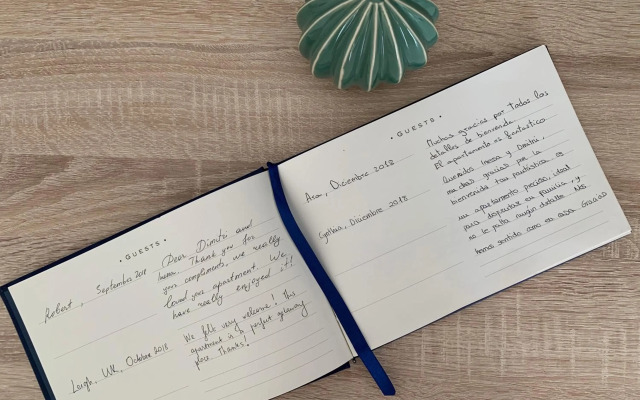 · GUESTS ·
Robert, September 2018
Dear Dimitri and
Inessa. Thank you for
your compliments, we really
loved your apartment. We
have really enjoyed it!
Leigh, UK, October 2018
We felt very welcome! This
apartment is a perfect getaway
place. Thanks!
· GUESTS ·
Ana, Diciembre 2018
Muchas gracias por todos los
detalles de bienvenida.
El apartamento es fantastico
Cynthia, Diciembre 2018
Queridos Inessa y Dmitri,
muchas gracias por la
bienvenida tan fantástica es
un apartamento precioso, ideal
para disfrutar en familia, y
no le falta ningún detalle. Nos
hemos sentido como en casa. Gracias